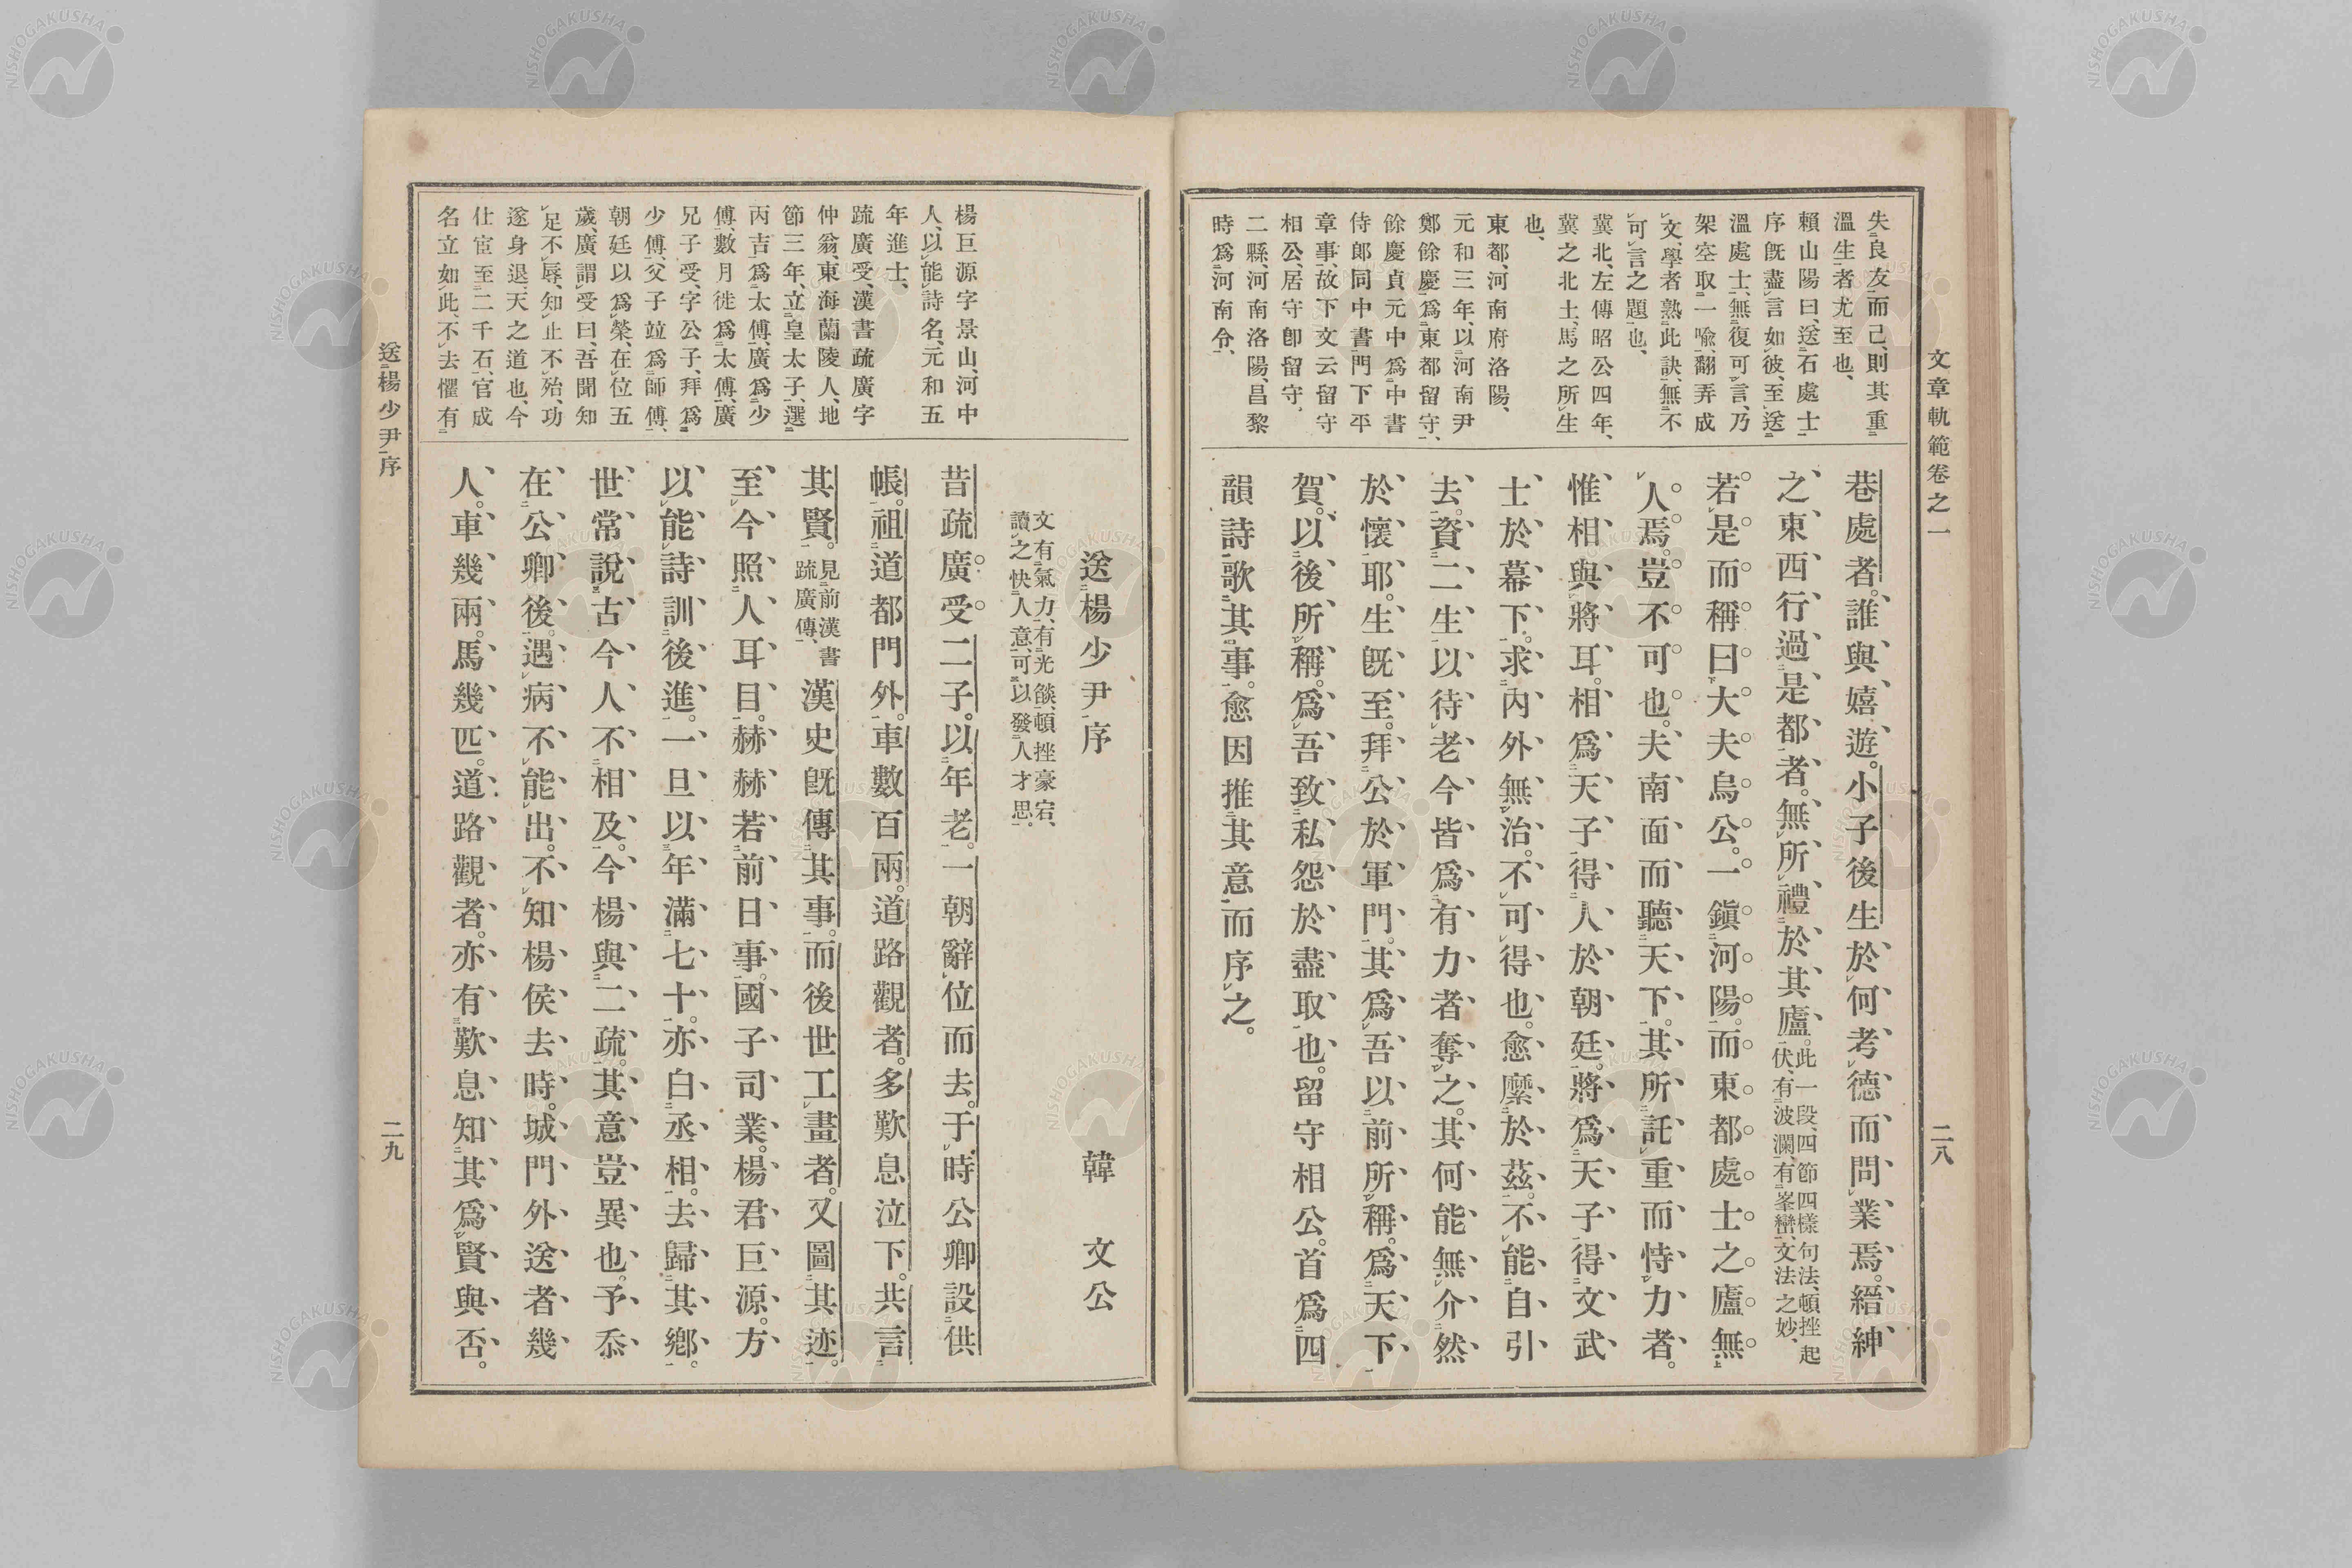 文章軌範卷之一
二八
失良友而己、則其重
溫生者尤至也、
賴山陽曰、送石處士
序既盡言如彼、至送
溫處士、無復可言、乃
架空取一喩、翻弄成
文、學者熟此訣、無不
可言之題也、
冀北、左傳昭公四年、
冀之北土、馬之所生
也、
東都、河南府洛陽、
元和三年、以河南尹
鄭餘慶爲東都留守、
餘慶貞元中爲中書
侍郞同中書門下平
章事、故下文云留守
相公、居守卽留守、
二縣、河南洛陽、昌黎
時爲河南令、
巷處者。誰與嬉遊。小子後生於何考德而問業焉。縉紳
之東西行過是都者。無所禮於其廬。此一段、四節四樣句法、頓挫起伏、有波瀾、有峯巒、文法之妙、
若是而稱曰。大夫烏公。一鎭河陽。而東都處士之廬無
人焉。豈不可也。夫南面而聽天下。其所託重而恃力者。
惟相與將耳。相爲天子得人於朝廷。將爲天子得文武
士於幕下。求內外無治。不可得也。愈縻於茲。不能自引
去。資二生以待老。今皆爲有力者奪之。其何能無介然
於懷耶。生既至。拜公於軍門。其爲吾以前所稱。爲天下
賀。以後所稱。爲吾致私怨於盡取也。留守相公。首爲四
韻詩歌其事。愈因推其意而序之。
楊巨源字景山、河中
人、以能詩名、元和五
年進士、
疏廣受、漢書疏廣字
仲翁、東海蘭陵人、地
節三年、立皇太子、選
丙吉爲太傅、廣爲少
傅、數月徙爲太傅、廣
兄子受、字公子、拜爲
少傅、父子竝爲師傅、
朝廷以爲榮、在位五
歲、廣謂受曰、吾聞知
足不辱、知止不殆、功
遂身退、天之道也、今
仕宦至二千石、官成
名立如此、不去懼有
送楊少尹序 韓文公
文有氣力、有光燄、頓挫豪宕、
讀之快人意、可以發人才思。
昔疏廣受二子。以年老。一朝辭位而去。于時公卿設供
帳。祖道都門外。車數百兩。道路觀者。多歎息泣下。共言
其賢。見前漢書疏廣傳、漢史既傳其事。而後世工畫者。又圖其迹。
至今照人耳目。赫赫若前日事。國子司業。楊君巨源。方
以能詩訓後進。一旦以年滿七十。亦白丞相。去歸其鄕。
世常說古今人不相及。今楊與二疏。其意豈異也。予忝
在公卿後。遇病不能出。不知楊侯去時。城門外送者幾
人。車幾兩。馬幾匹。道路觀者。亦有歎息知其爲賢與否。
送楊少尹序
二九